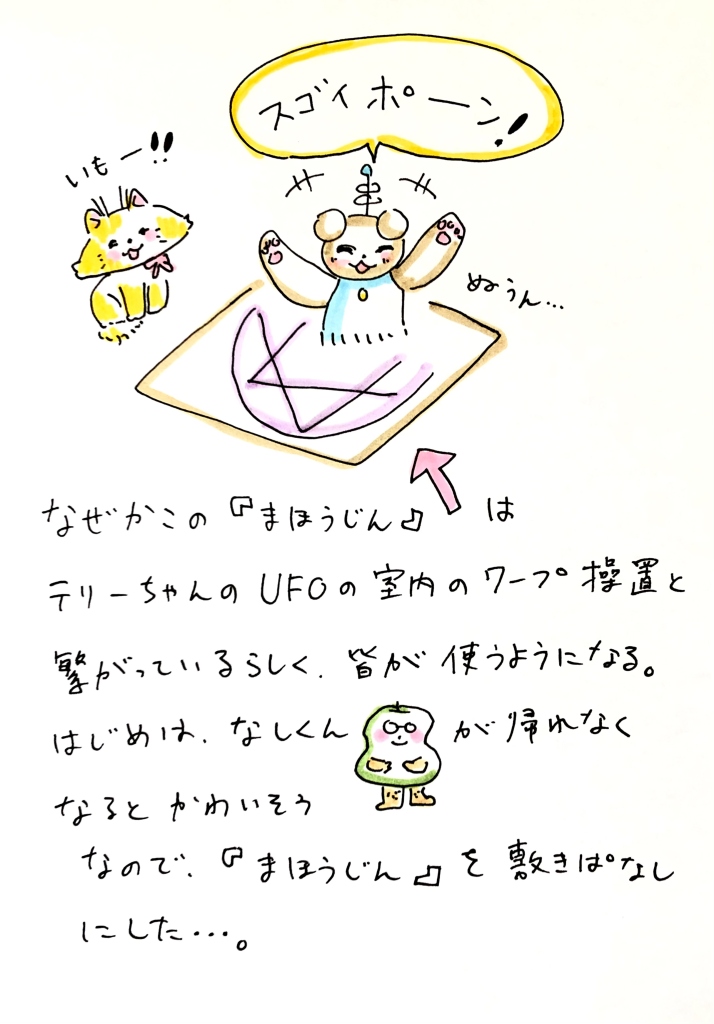 スゴイポーン!
いもー!!
ぬぅん…
なぜかこの『まほうじん』は
テリーちゃんのUFOの室内のワープ操置と
繋がっているらしく、皆が使うようになる。
はじめは、なしくんが帰れなく
なるとかわいそう
なので、『まほうじん』を敷きぱなし
にした…。